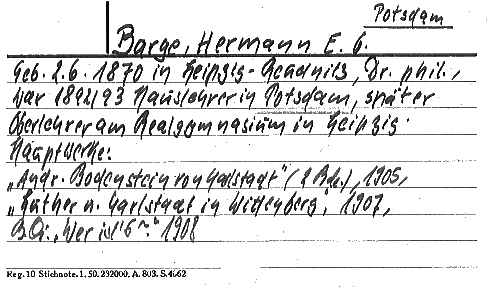 Potsdam
Barge, Hermann E. G.
Geb. 2.6. 1870 in Leipzig-Reudnitz, Dr. phil.,
war 1892/93 Hauslehrer in Potsdam, später
Oberlehrer am Realgymnasium in Leipzig.
Hauptwerke:
„Andr. Bodenstein von Carlstadt" (2 Bde.), 1905,
„Luther u. Carlstadt in Wittenberg", 1907,
„Wer ist's?" 1908
Reg. 10 Stichnote. 1. 50. 232000. A. 803. S. 4662